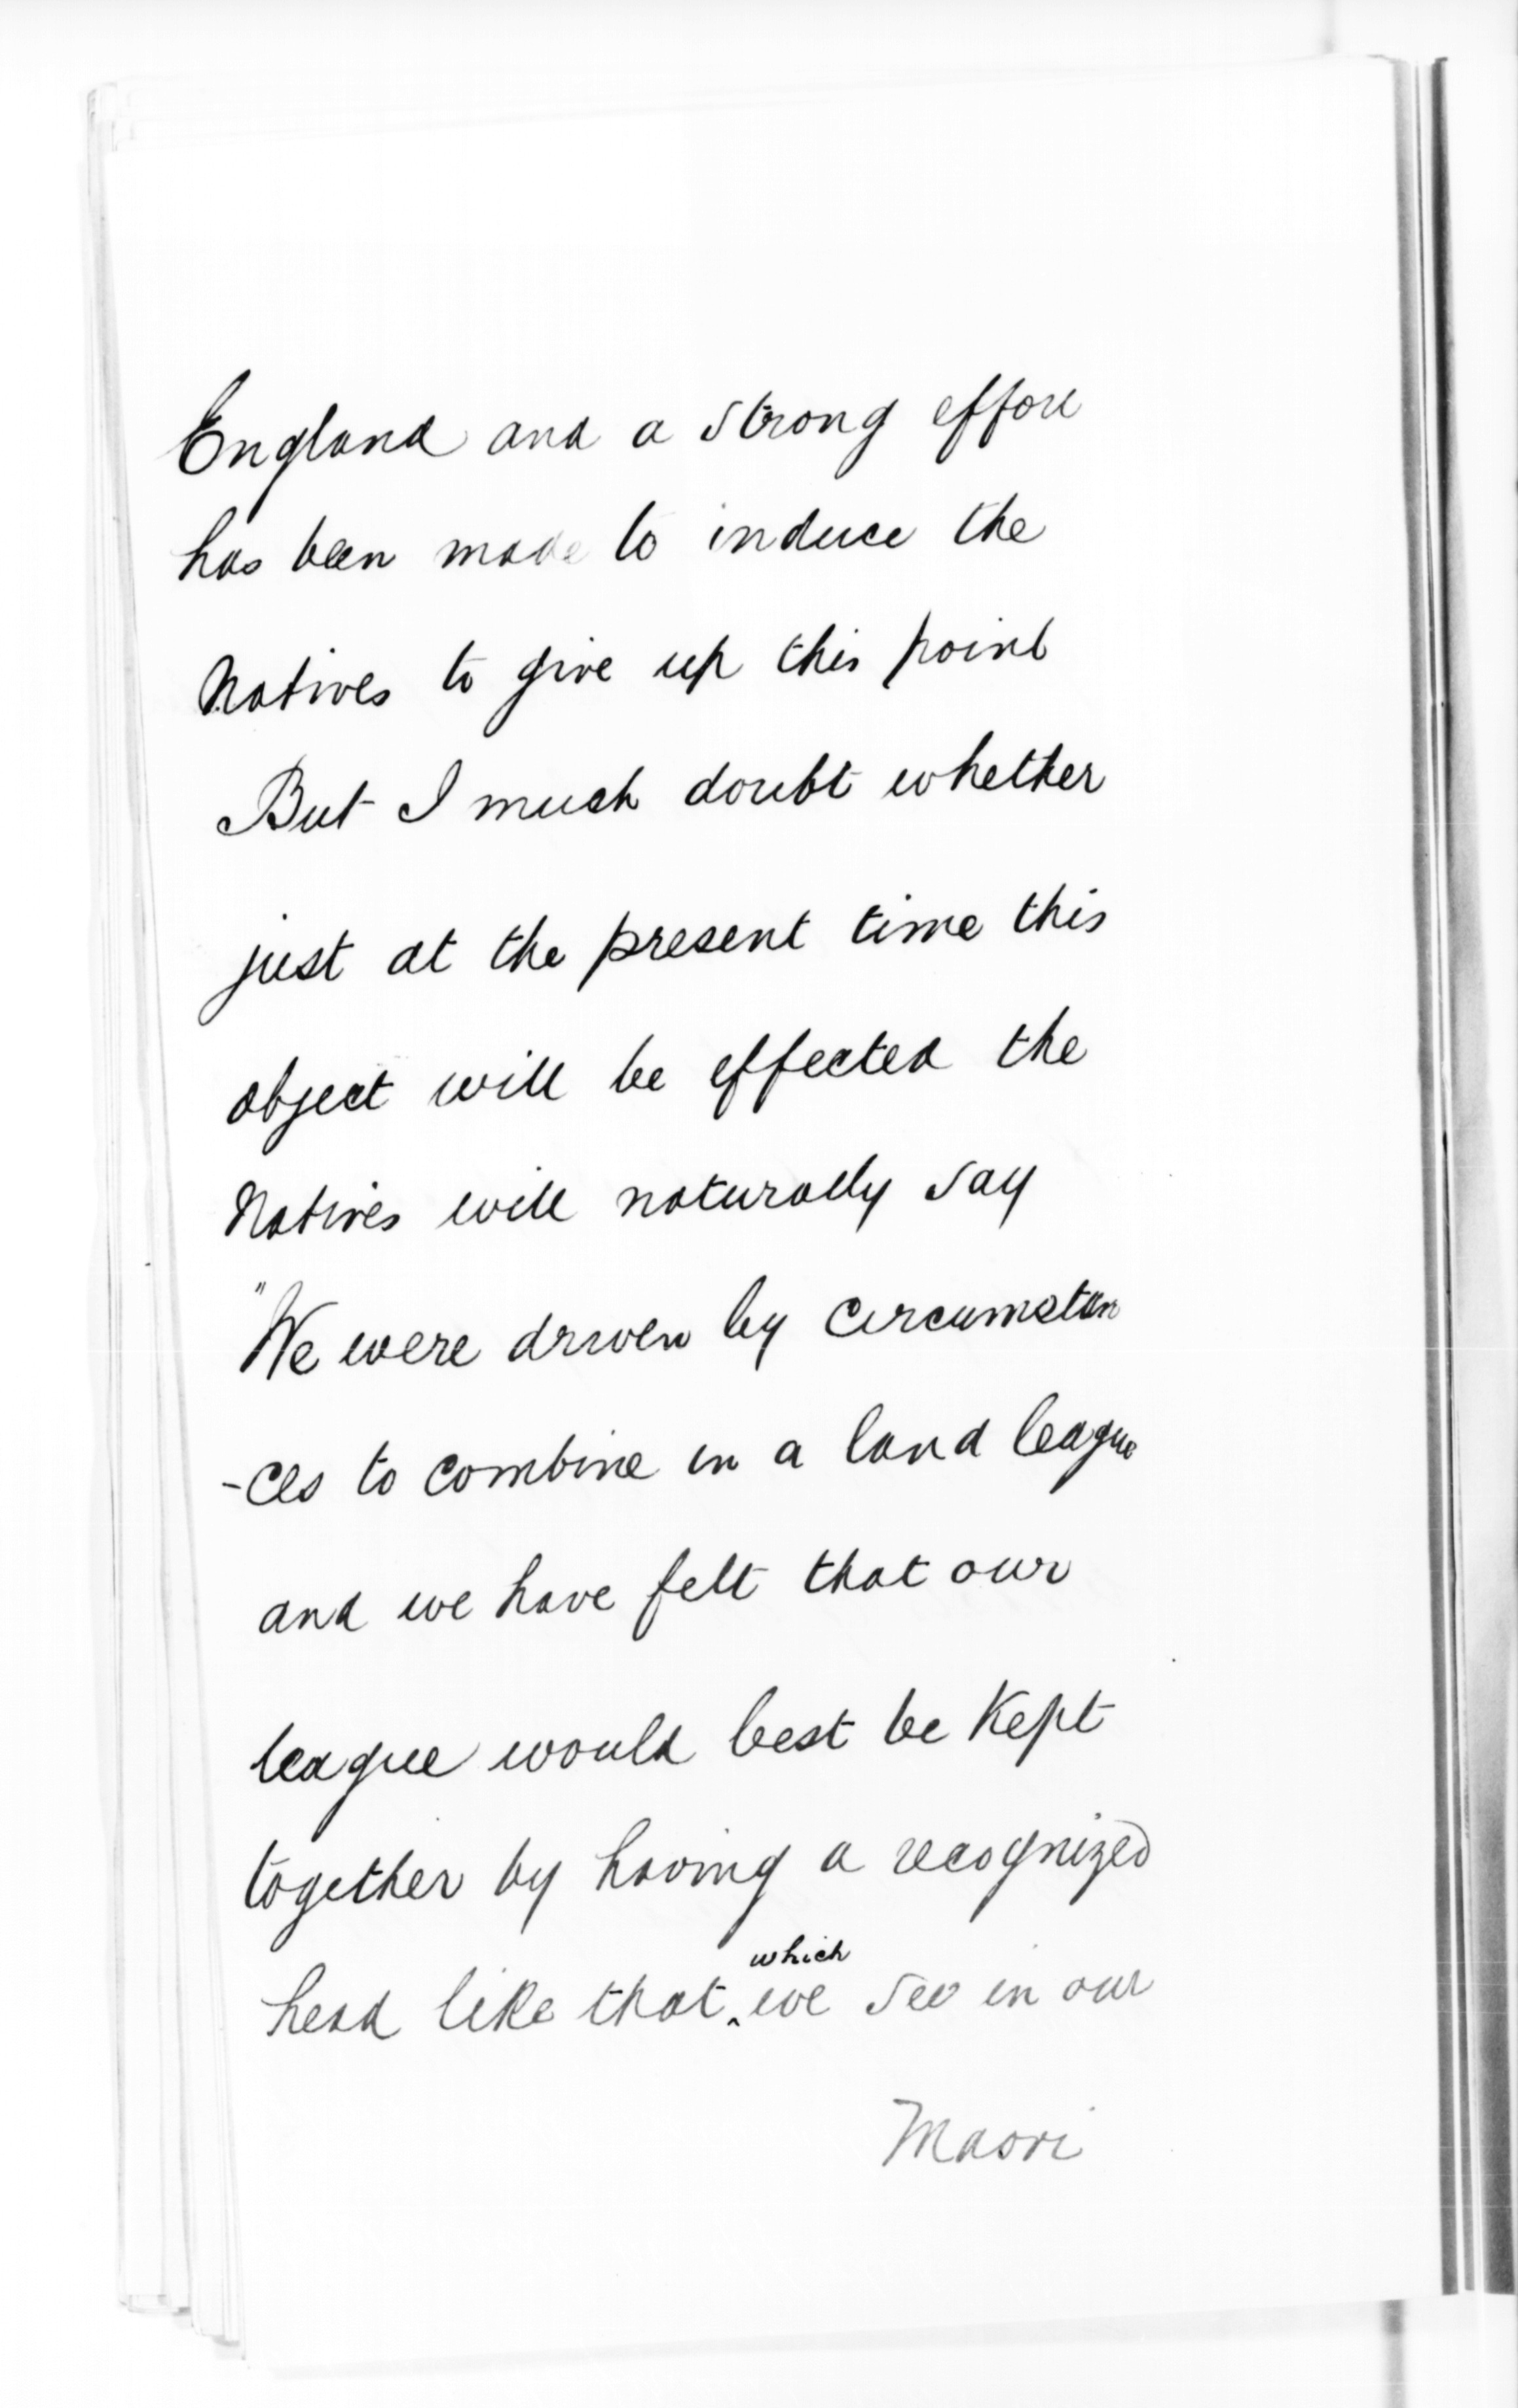 England and a strong effort
has been made to induce the
Natives to give up this point
But I much doubt whether
just at the present time this
object will be effected the
Natives will naturally say
"We were driven by circumstan
-ces to combine in a land league
and we have felt that our
league would best be kept
together by having a recognized
head like that ‸which we see in our
Maori